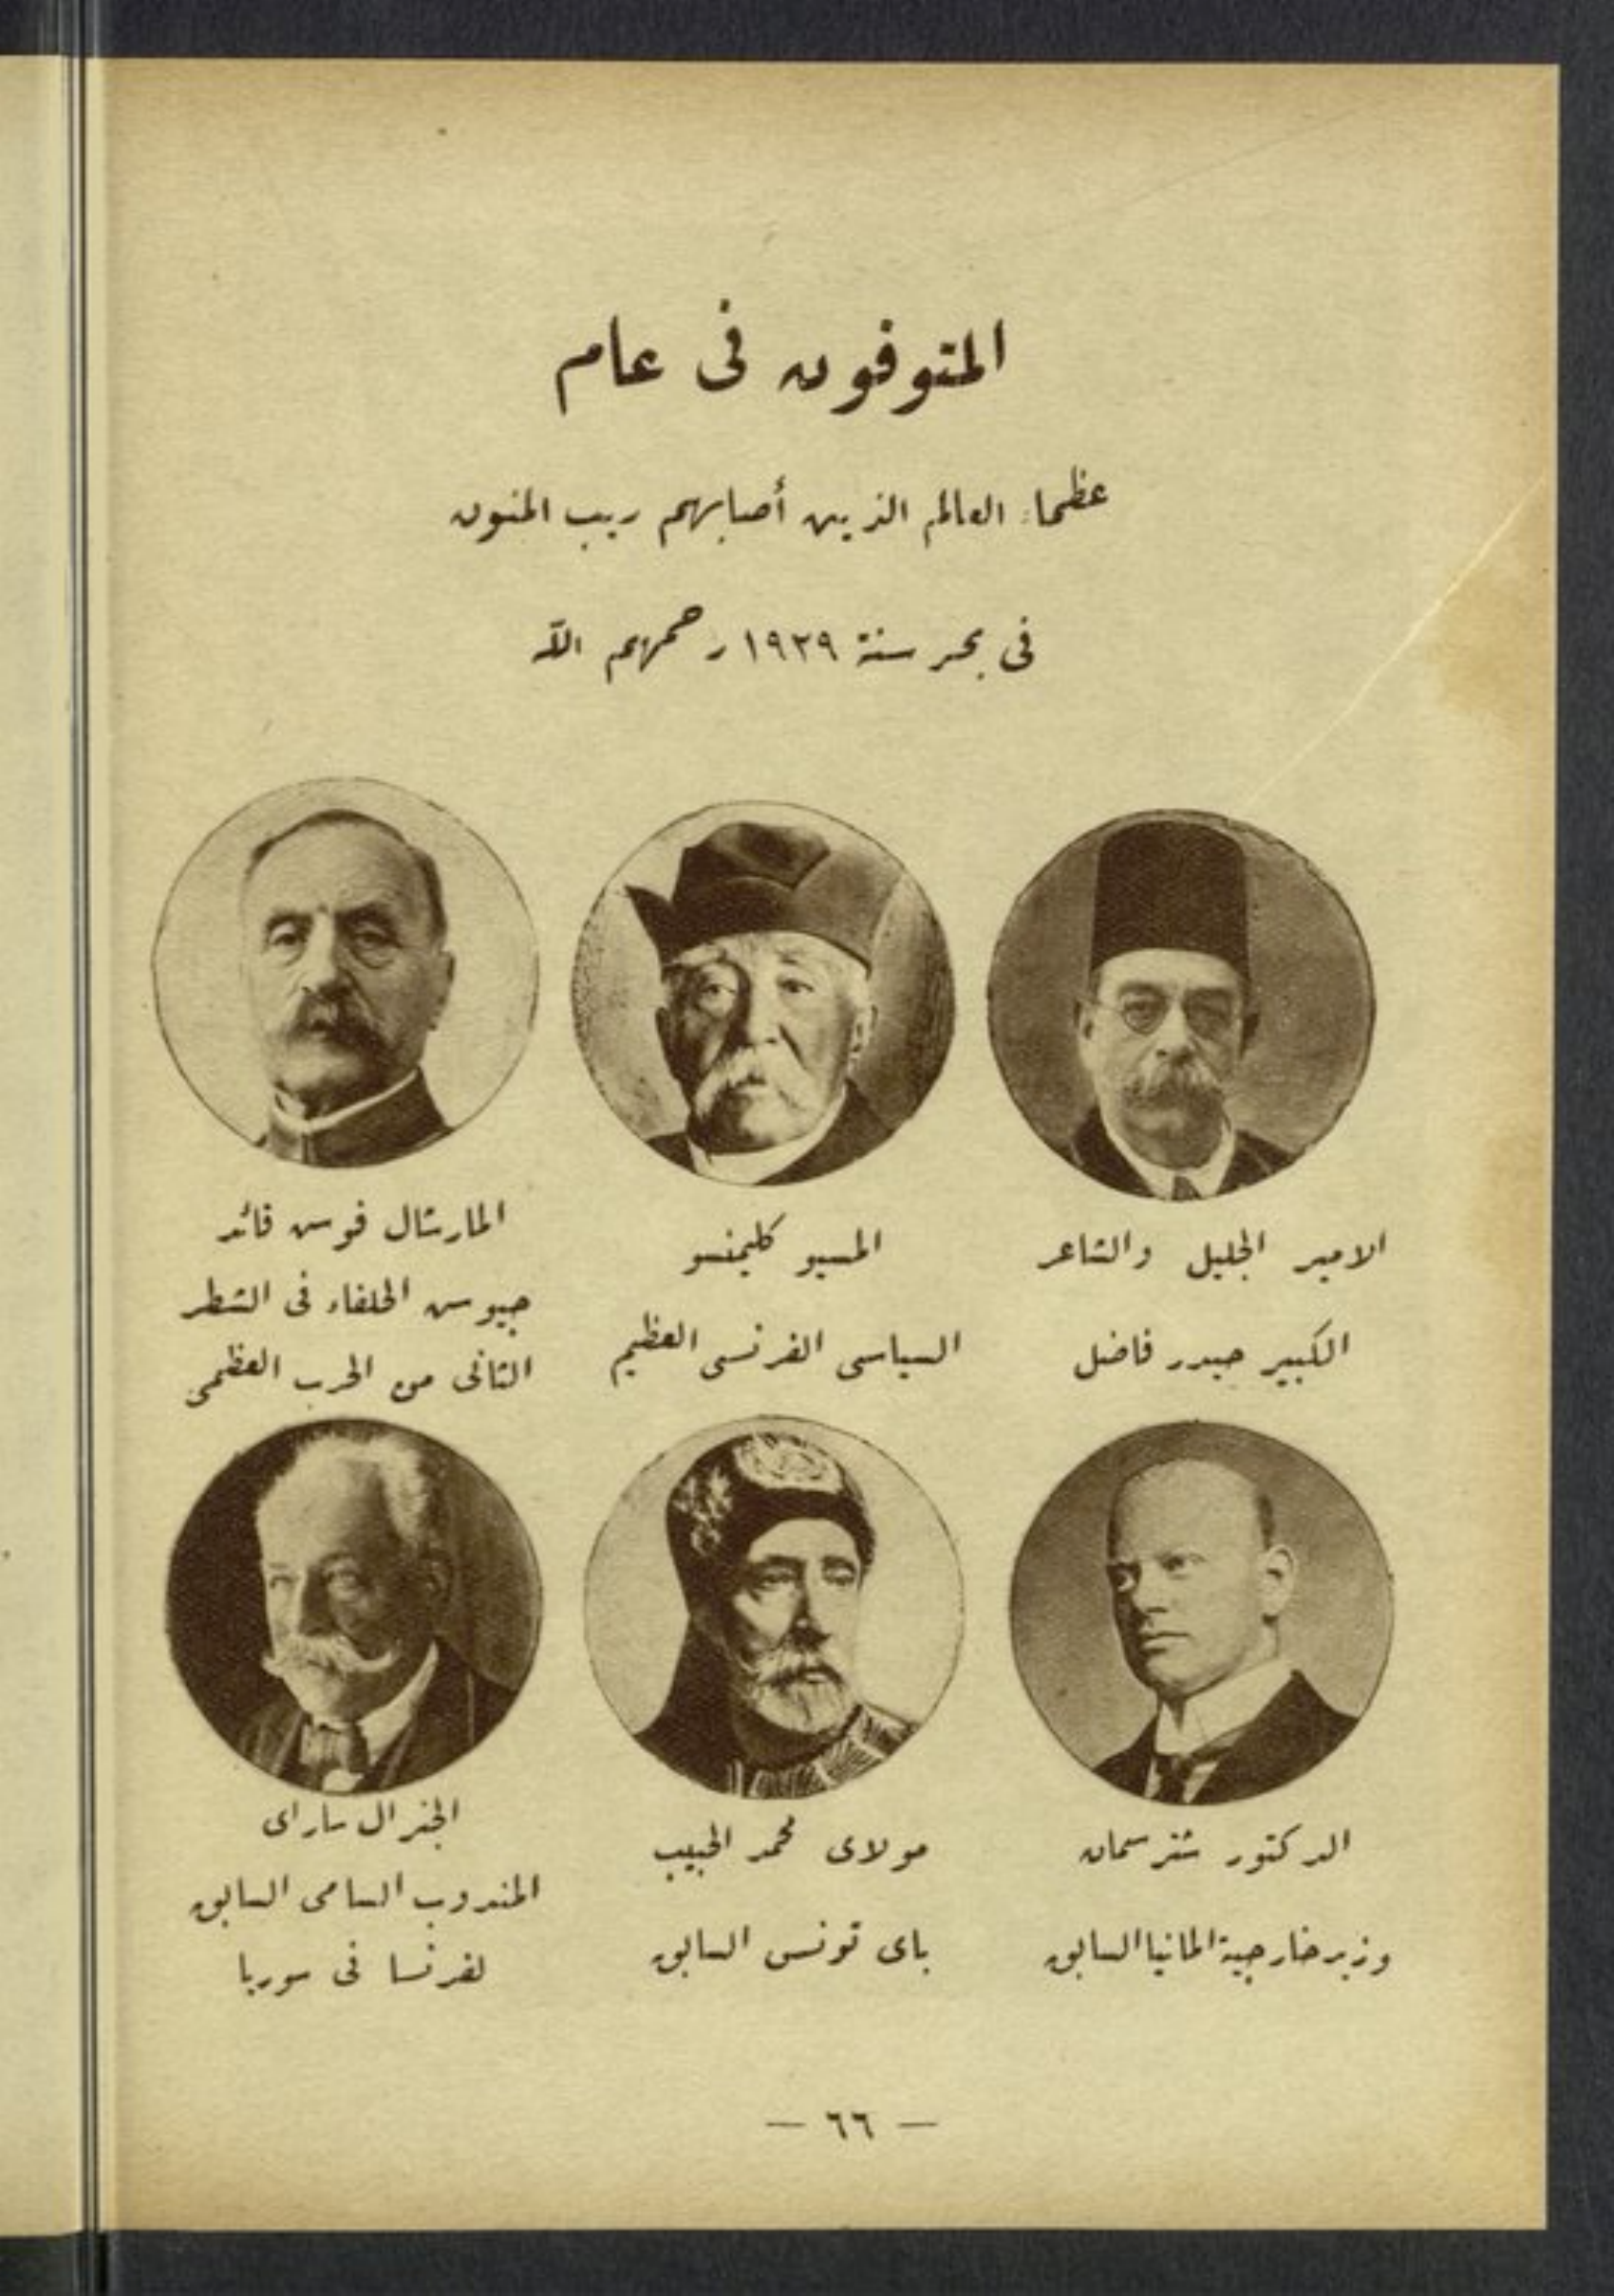 المتوفون فى عام
عظماء العالم الذين أصابهم ريب المنون
فى بحر سنة ١٩٢٩ رحمهم الله
الامير الجليل والشاعر
الكبير حيدر فاضل
المسيو كليمنسو
السياسى الفرنسى العظيم
المارشال فوش قائد
جيوش الحلفاء فى الشطر
الثانى من الحرب العظمى
الدكتور شترسمان
وزير خارجية المانيا السابق
مولاى محمد الحبيب
باى تونس السابق
الجنرال ساراى
المندوب السامى السابق
لفرنسا فى سوريا
— ٦٦ —